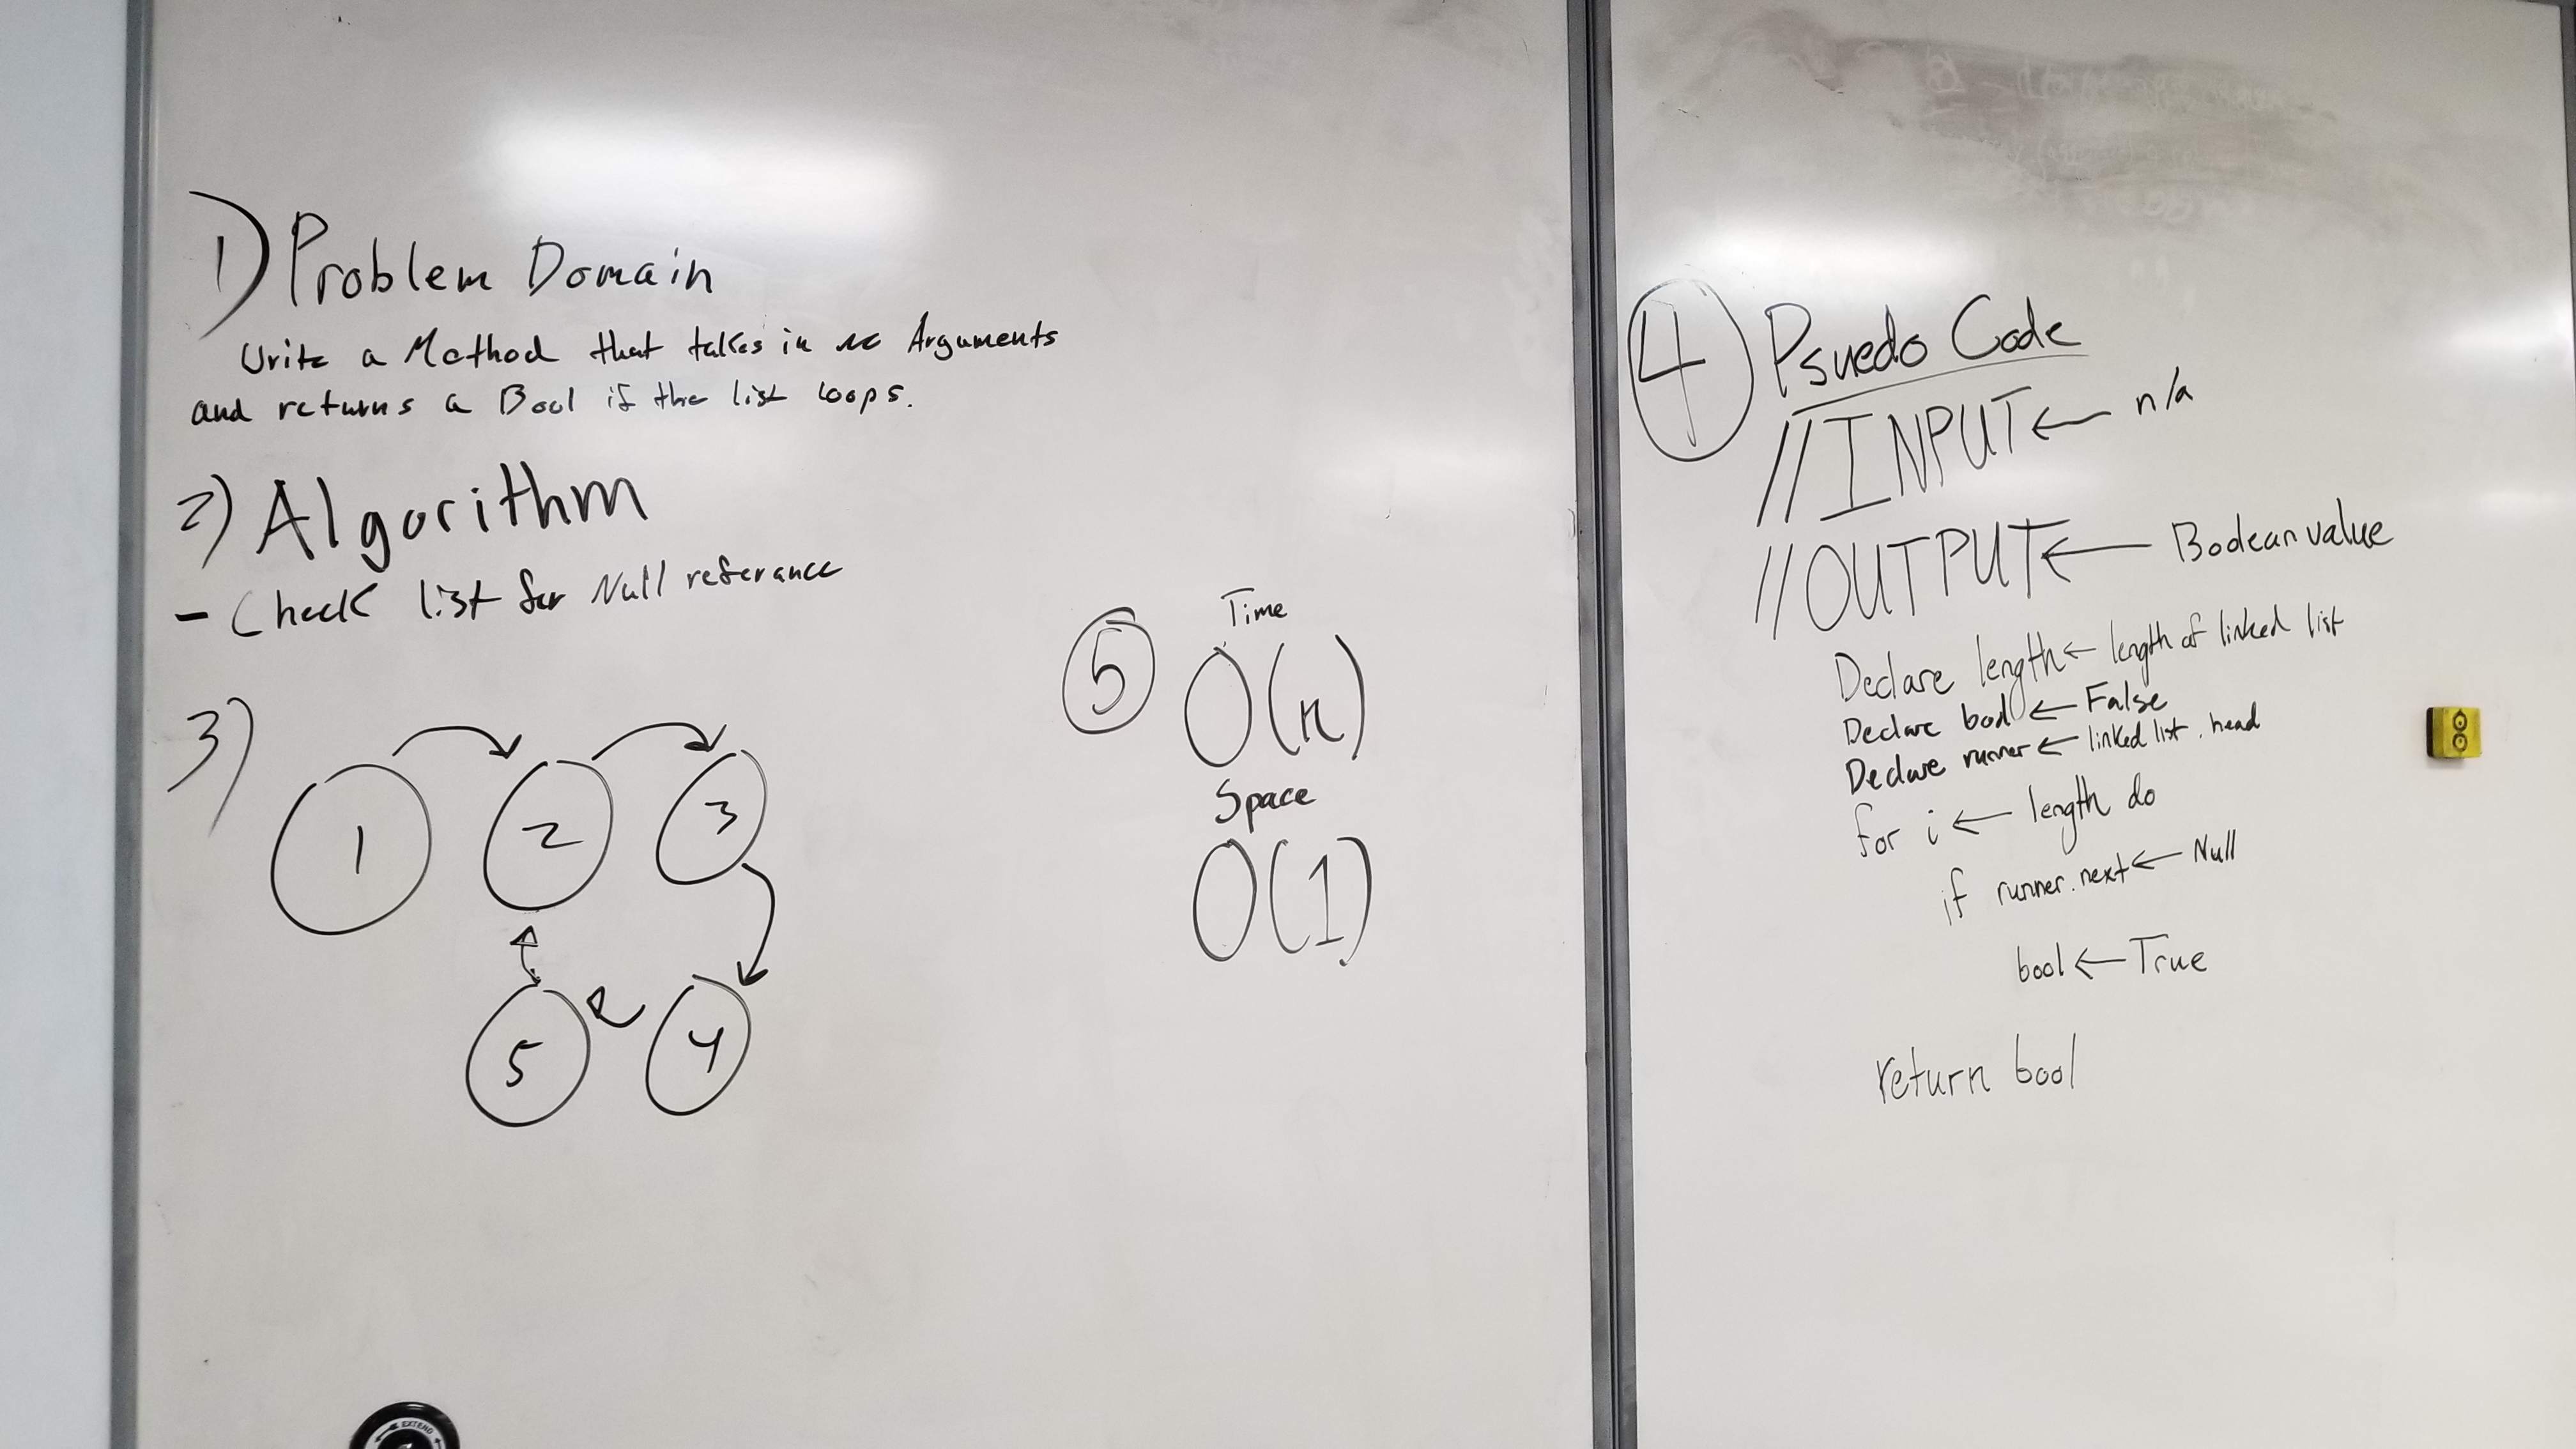 1) Problem Domain
Write a Method that takes in no Arguments
and returns a Bool if the list loops.
2) Algorithm
- Check list for Null referance
3)
1 2 3
5 4
5
Time
O(n)
Space
O(1)
4 Psuedo Code
//INPUT ← n/a
//OUTPUT ← Boolean value
Declare length ← length of linked list
Declare bool ← False
Declare runner ← linked list . head
for i ← length do
if runner.next ← Null
bool ← True
return bool
EXTEND